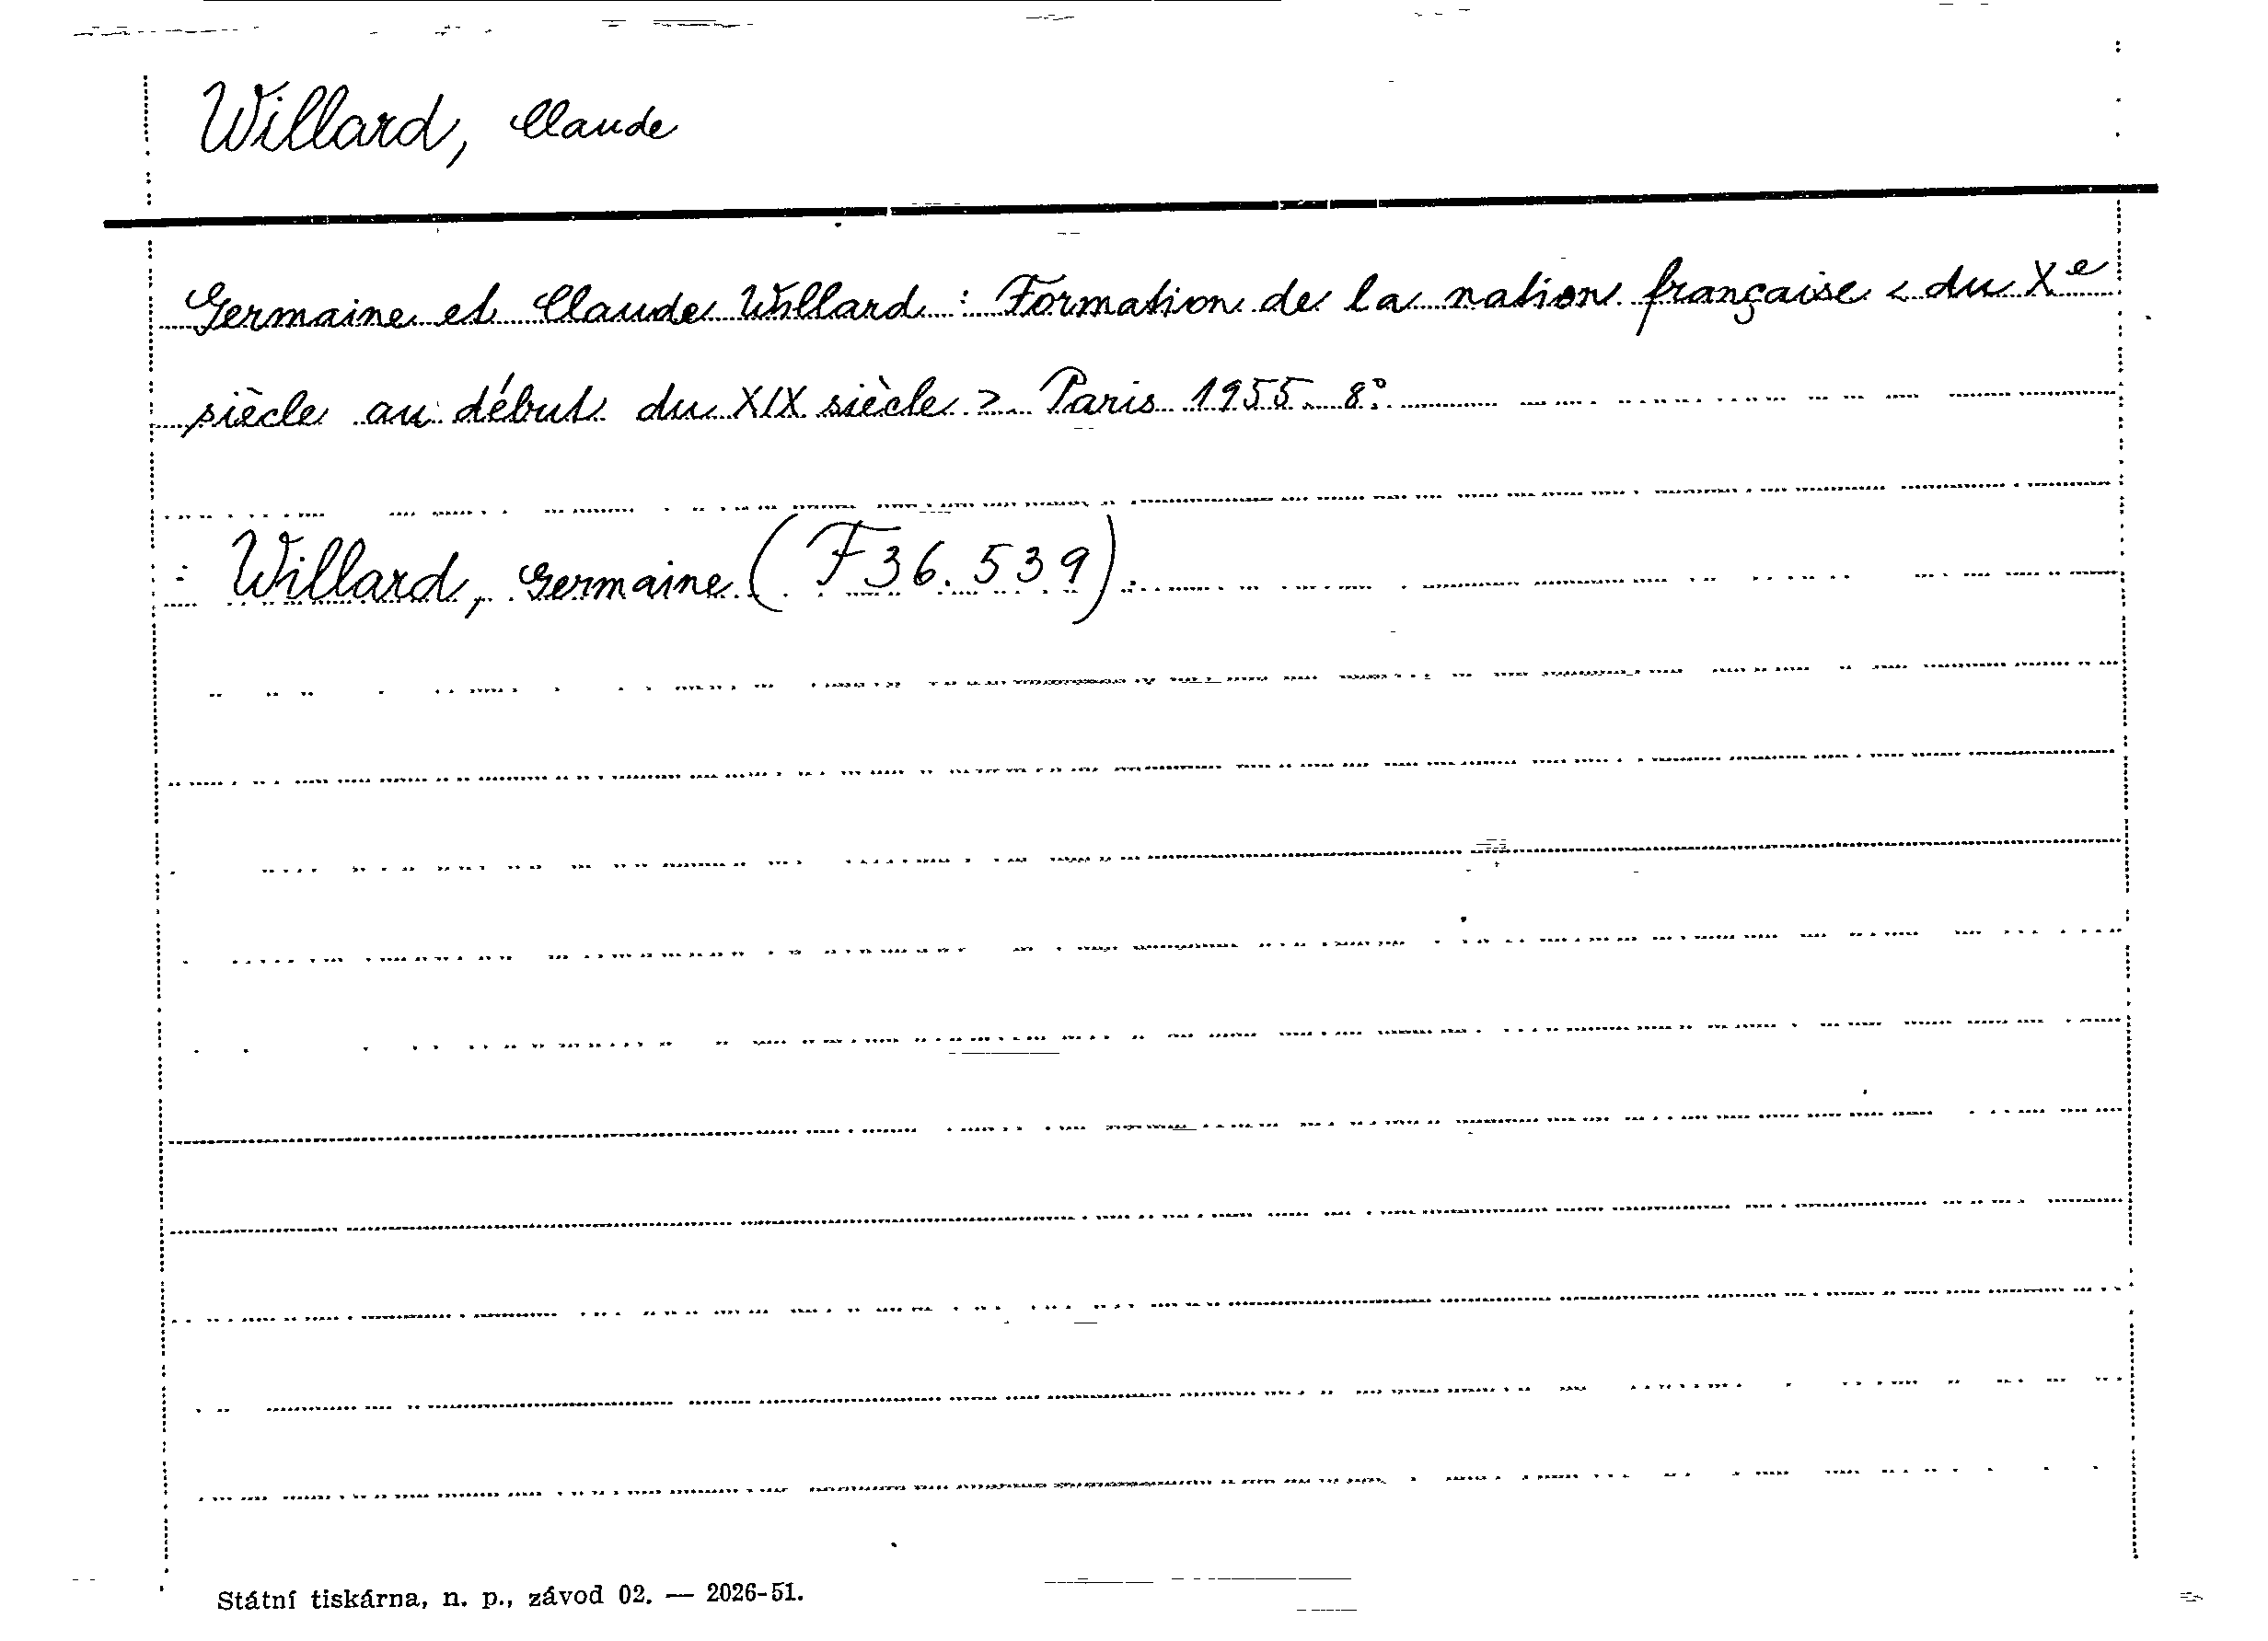 Willard, Claude
Germaine et Claude Willard : Formation de la nation française < du Xe
siècle au début du XIX siècle > Paris 1955. 8°.
: Willard, Germaine (F36.539).
Státní tiskárna, n. p., závod 02. — 2026-51.